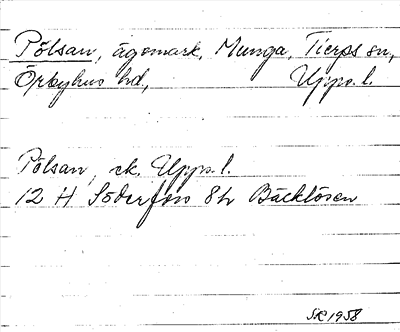 Pölsan, ägomark, Munga, Tierps sn,
Örbyhus hd, Upps. l.
Pölsan, ek. Upps. l.
12 H Söderfors 8h Bäcklösen
SR 1958